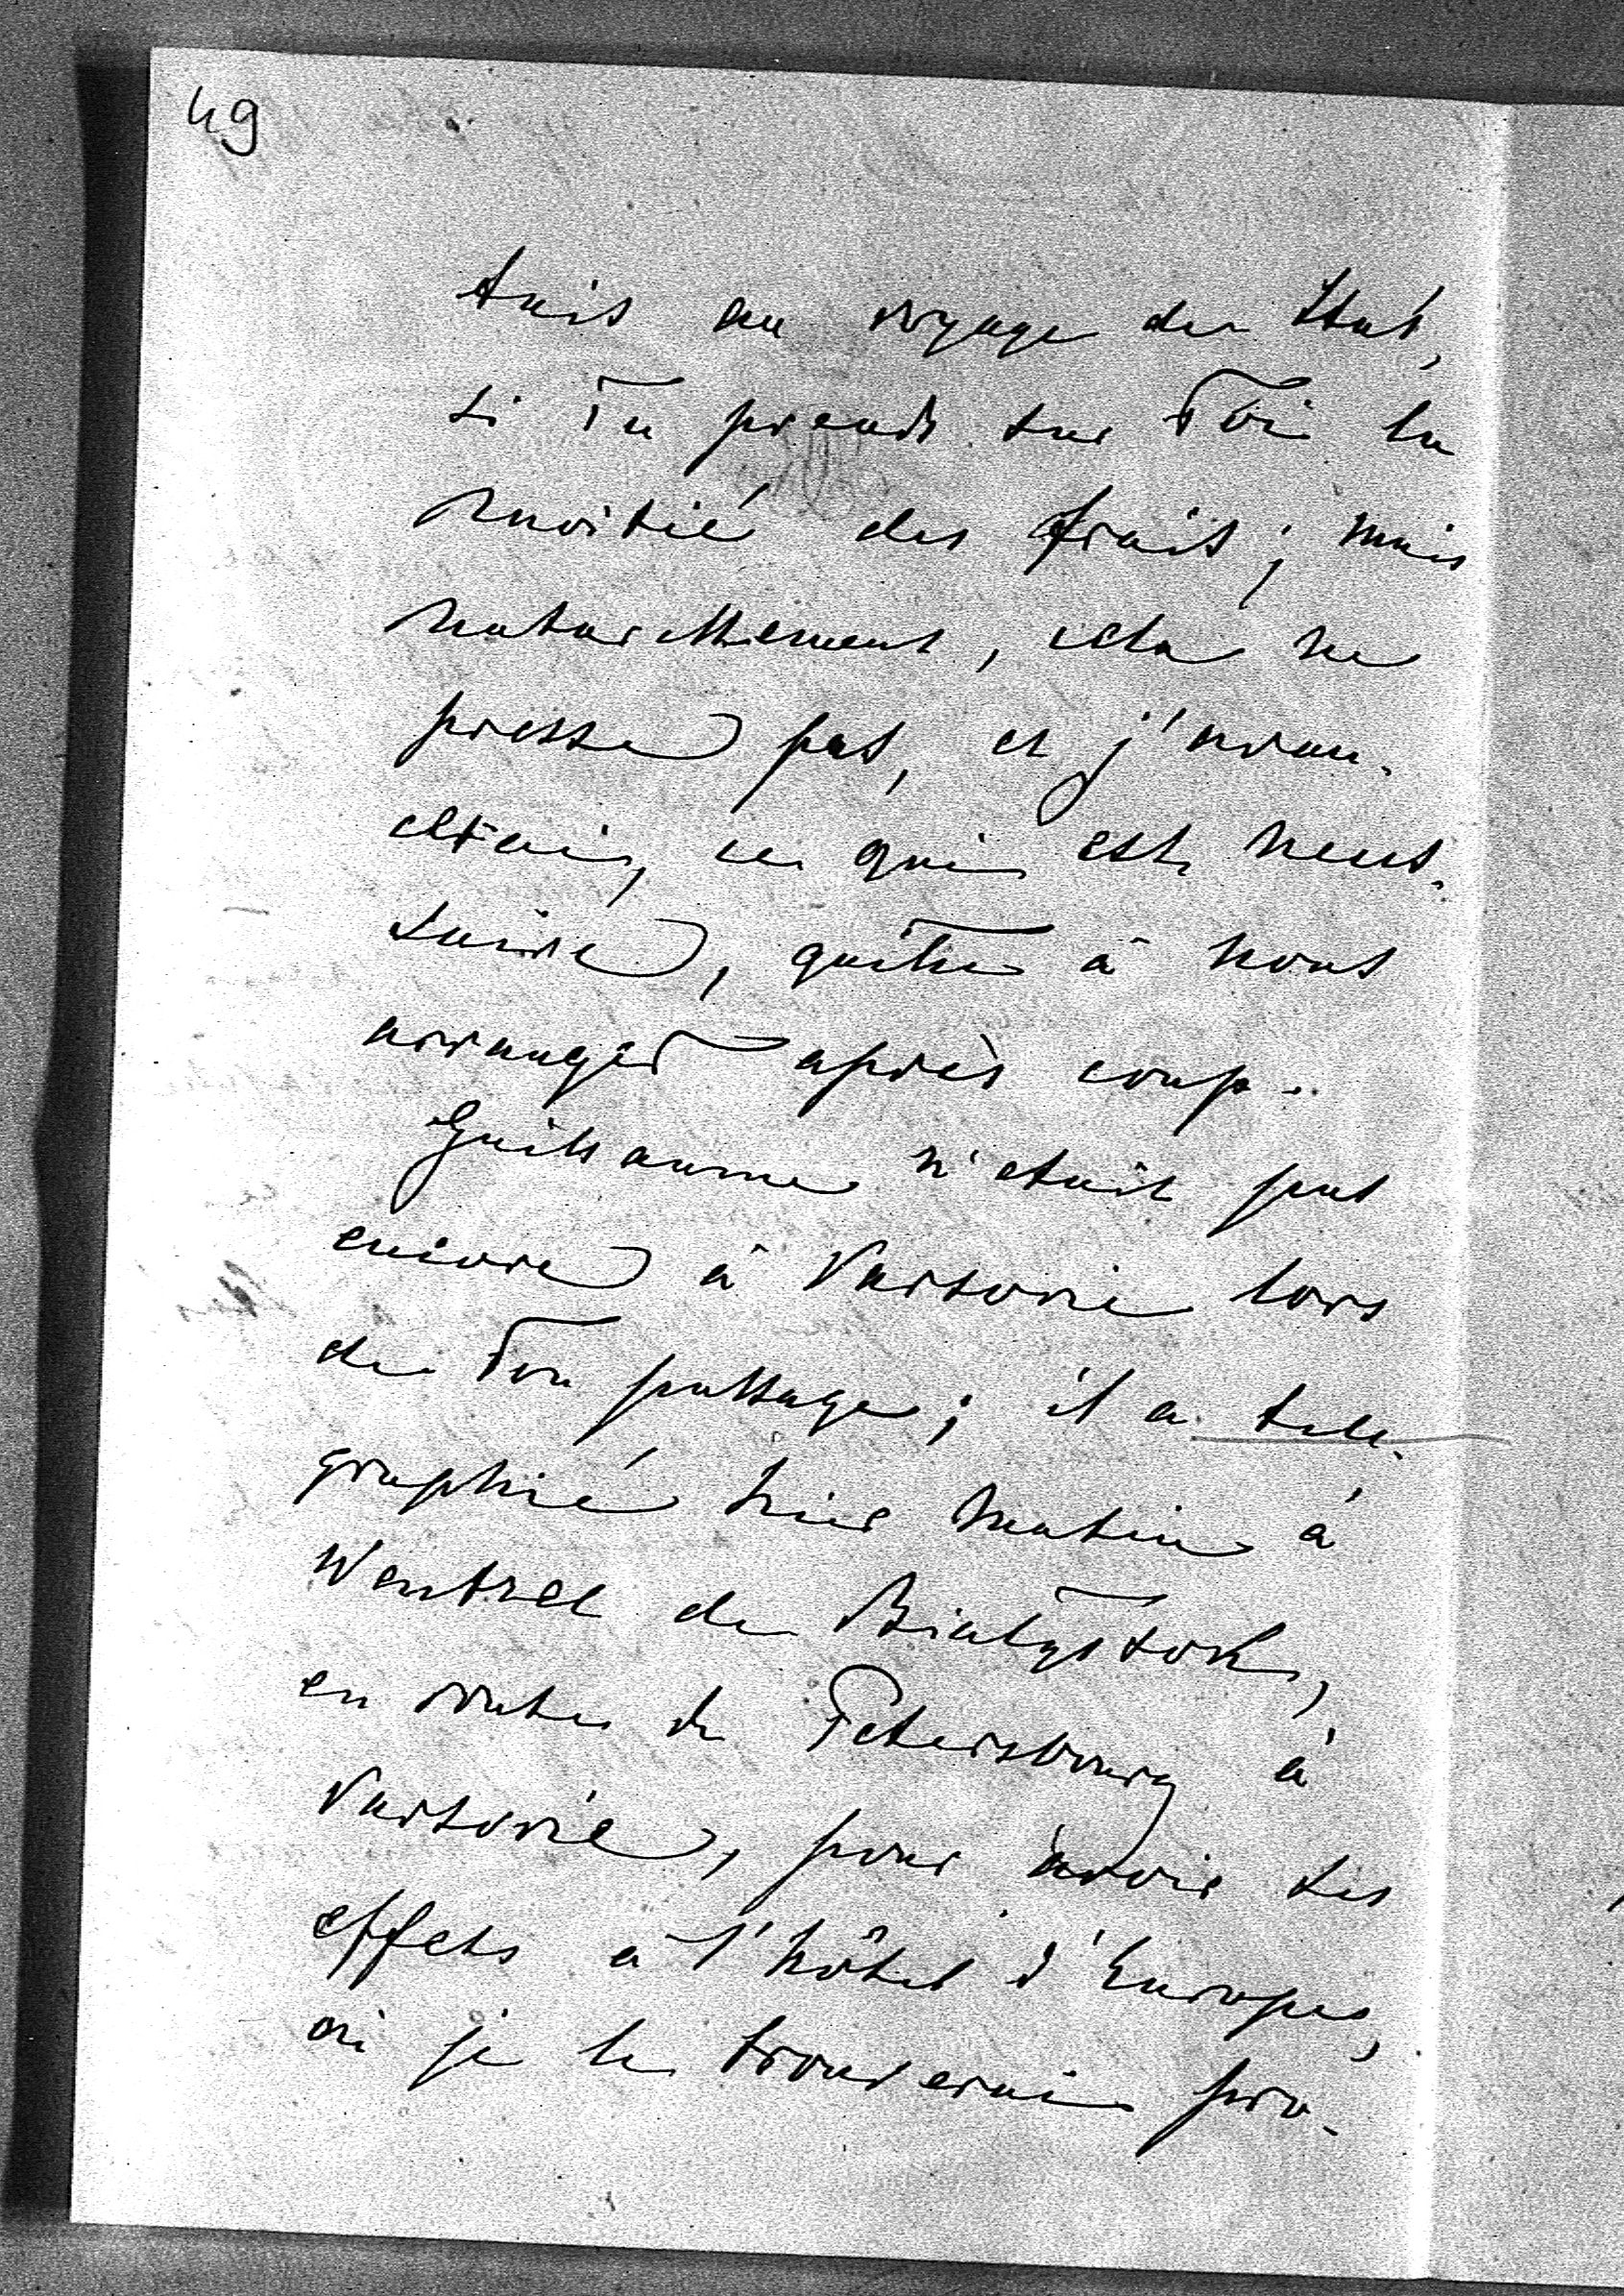 49
suis au voyage de Staś,
si Tu prends sur Toi la
moitié des frais; mais
naturellement, cela ne
presse pas, et j'avan-
cerai, ce qui est néces-
saire, quitte à nous
arranger après coup.
Guillaume n'était pas
encore à Varsovie lors
de Ton passage; il a télé-
graphié hier matin à
Wentzel de Białystok,
en route de Petersbourg à
Varsovie, pour avoir ses
effets à l'hôtel d'Europe,
où je le trouverai pro-